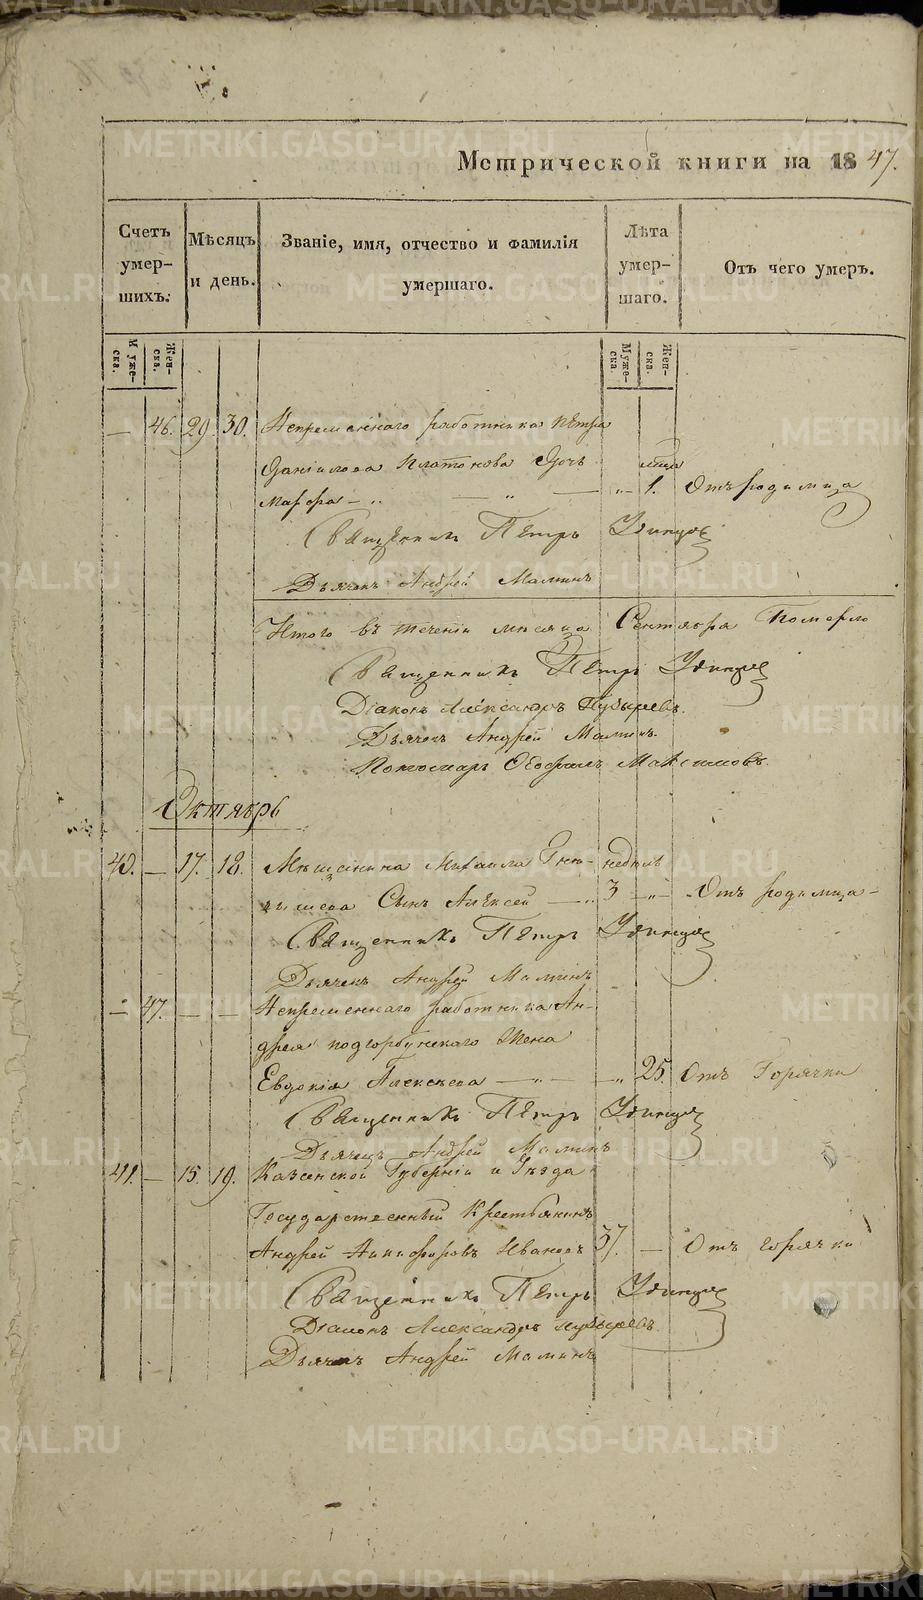 Метрической книги на 1847.
Счетъ умершихъ.
Мѣсяцъ и день.
Званіе, имя, отчество и фамилія умершаго.
Лѣта умершаго.
Отъ чего умеръ.
Мужеска.
Женска.
Мужеска.
Женска.
— 46. 29. 30. Непременнаго работника Петра
Данілова Платонова Дочь
Марѳра — „ — „ — „ 1. Отъ родимца
Священникъ Петръ Удинцовъ
Дьячекъ Андрей Маминъ
Итого въ теченіи месяца Сентября Померло
Священникъ Петръ Удинцовъ
Діаконъ Александръ Пузыревъ.
Дьячекъ Андрей Маминъ.
Пономарь Максимовъ.
Октябрь
40. — 17. 18. Мещанина Михаила недѣль
Сынъ Алексей — „ 3 — „ — Отъ родимца —
Священникъ Петръ Удинцовъ
Дьячекъ Андрей Маминъ
— 47. — — Непременнаго работника Ан-
дрея Подгорбунскаго Жена
Евдокія Алексеева — „ — — „ 25. Отъ Горячки
Священникъ Петръ Удинцовъ
Дьячекъ Андрей Маминъ
41. — 15. 19. Казанской Губерніи и Уѣзда
Государственный Крестьянинъ
Андрей Никифоровъ Ивановъ 37. — Отъ горячки
Священникъ Петръ Удинцовъ
Діаконъ Александръ Пузыревъ.
Дьячекъ Андрей Маминъ
METRIKI.GASO-URAL.RU